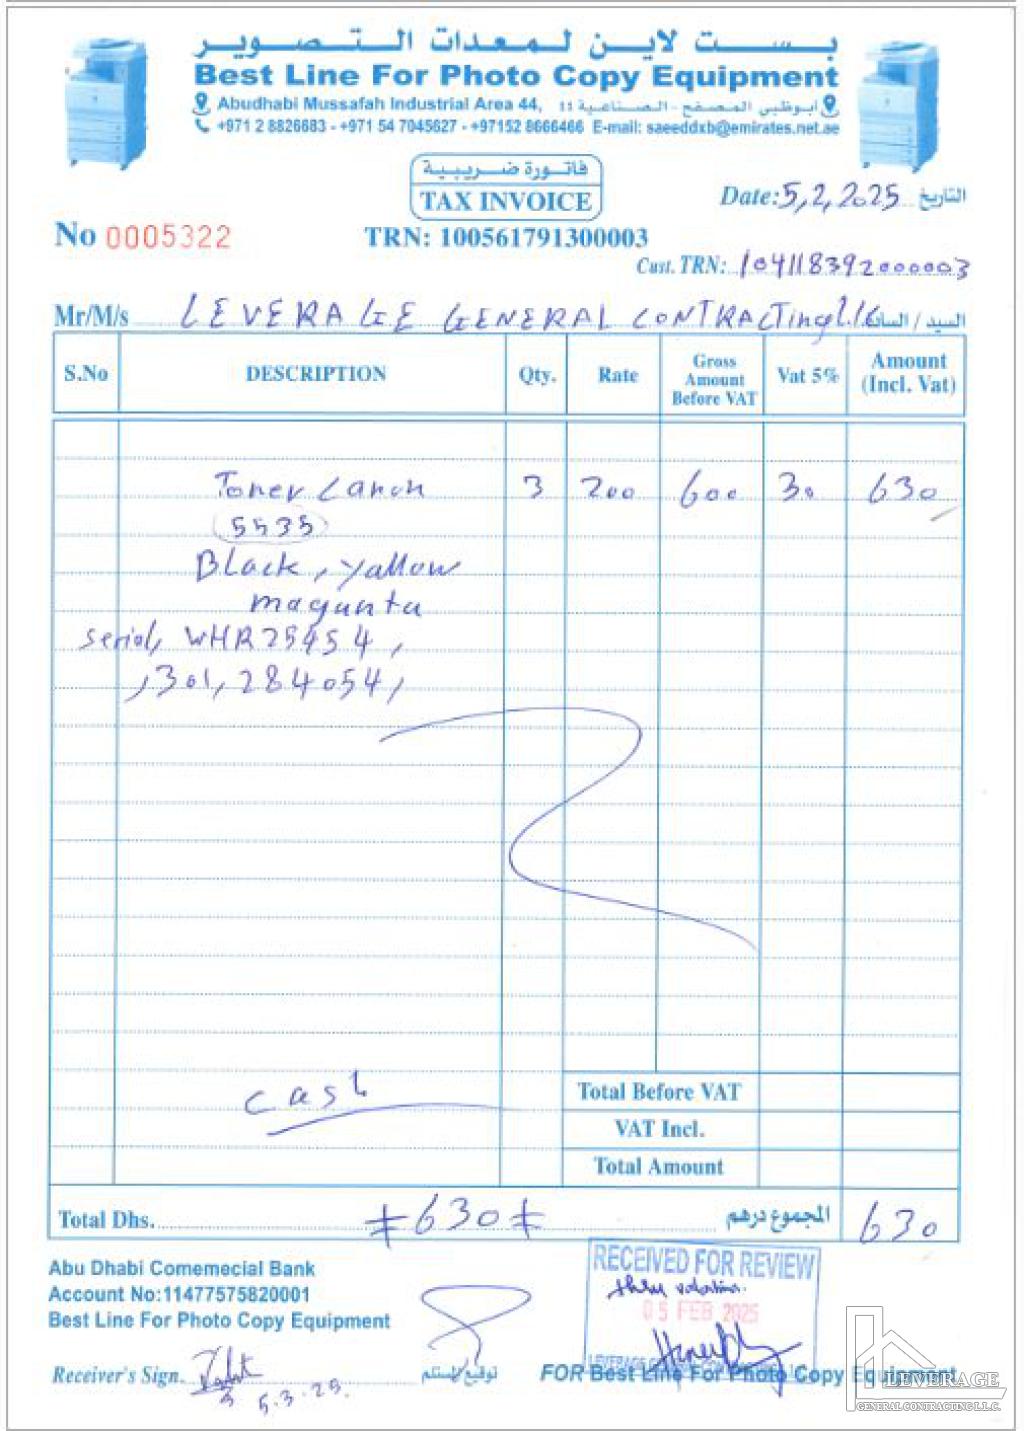 بست لاين لمعدات التصوير
Best Line For Photo Copy Equipment
Abudhabi Mussafah Industrial Area 44, ابوظبي المصفح - الصناعية 44
+971 2 8826683 - +971 54 7045627 - +97152 8666466 E-mail: saeeddxb@emirates.net.ae
فاتورة ضريبية
TAX INVOICE
Date: 5,2,2025 التاريخ
No 0005322
TRN: 100561791300003
Cust. TRN: 104118392000003
Mr/M/s LEVERAGE GENERAL CONTRACTing L.L.C السيد / السادة
S.No DESCRIPTION Qty. Rate Gross Amount Before VAT Vat 5% Amount (Incl. Vat)
Toner Canon 3 200 600 30 630
5535
Black, yallow
magunta
serial, WHR25454,
,301,284054,
cash
Total Before VAT
VAT Incl.
Total Amount
Total Dhs. ≠630≠ المجموع درهم 630
Abu Dhabi Comemecial Bank
Account No:11477575820001
Best Line For Photo Copy Equipment
RECEIVED FOR REVIEW
05 FEB 2025
Receiver's Sign. توقيع المستلم
5.3.25.
FOR Best Line For Photo Copy Equipment
LEVERAGE
GENERAL CONTRACTING L.L.C.